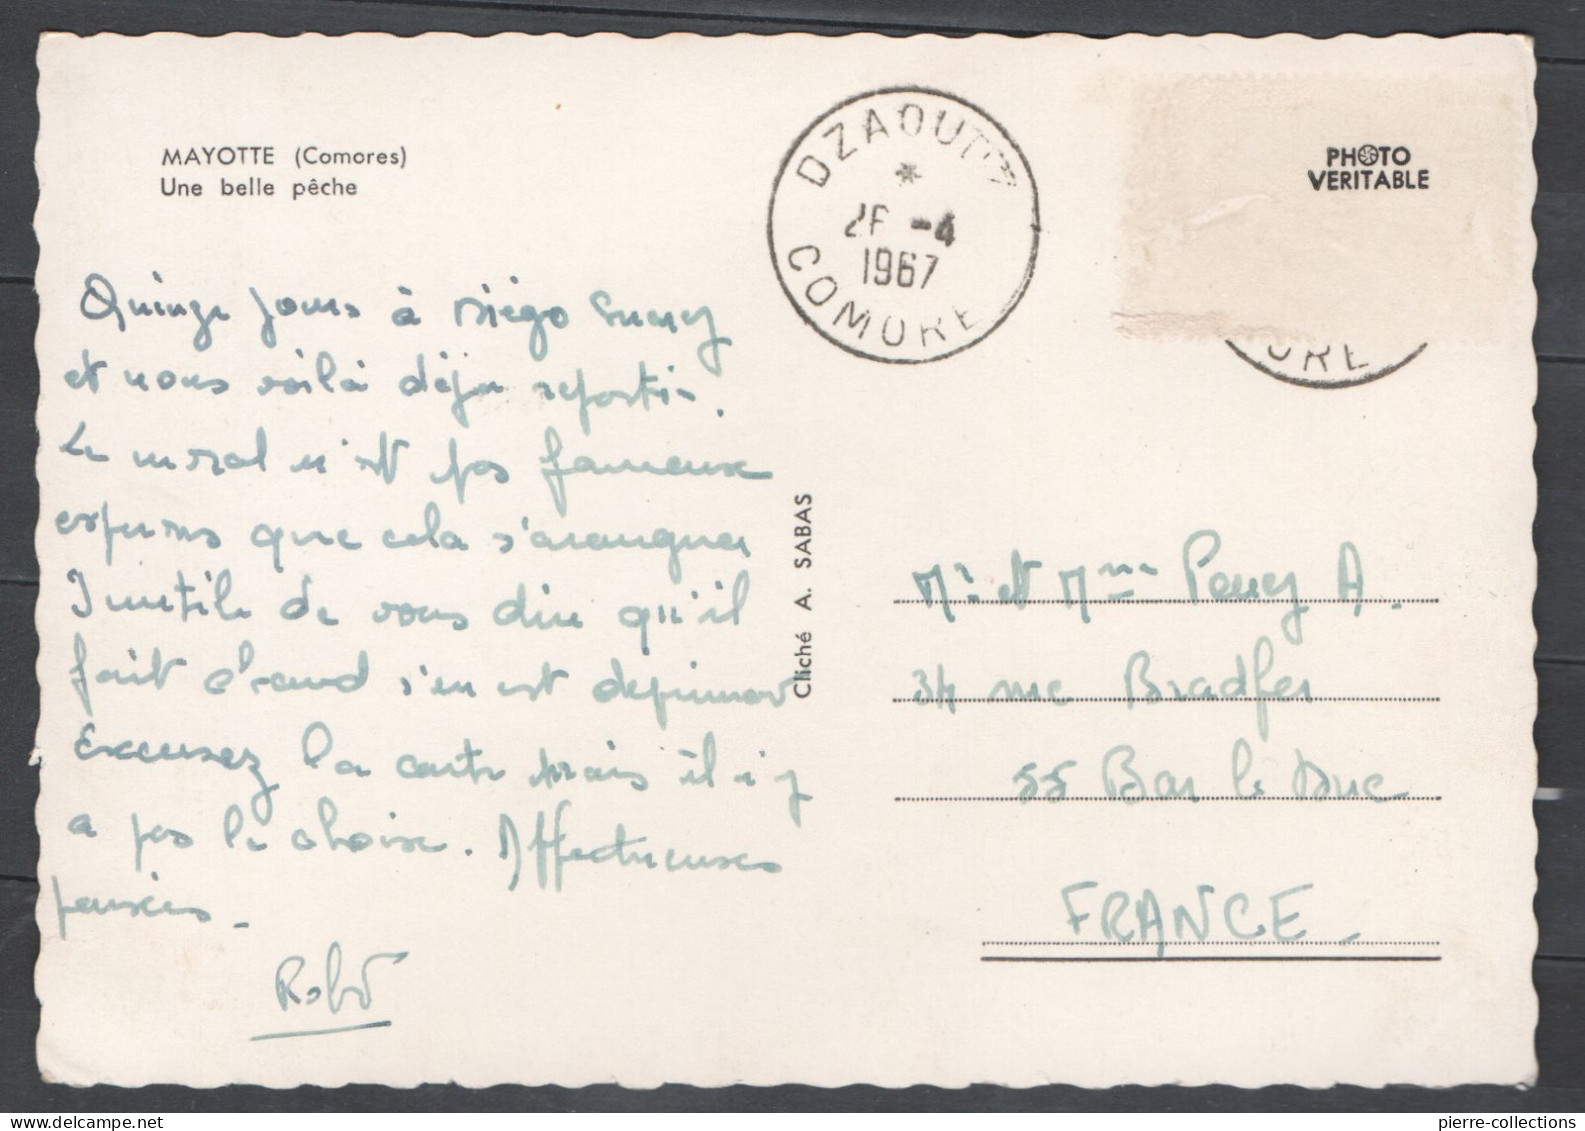 MAYOTTE (Comores)
Une belle pêche
DZAOUDZI
26 -4
1967
COMORE
PHOTO
VERITABLE
ORE
Quinze jours à Diégo Suarez
et nous voilà déja repartis.
Le moral n'est pas fameux
espérons que cela s'arrangera
Inutile de vous dire qu'il
fait chaud s'en est déprimant
Excusez la carte mais il i y
a pas le choix. Affectueuses
pensées.
Cliché A. SABAS
Mr et Mme A.
34 rue Bradfer
55 Bar le Duc
FRANCE
pierre-collections